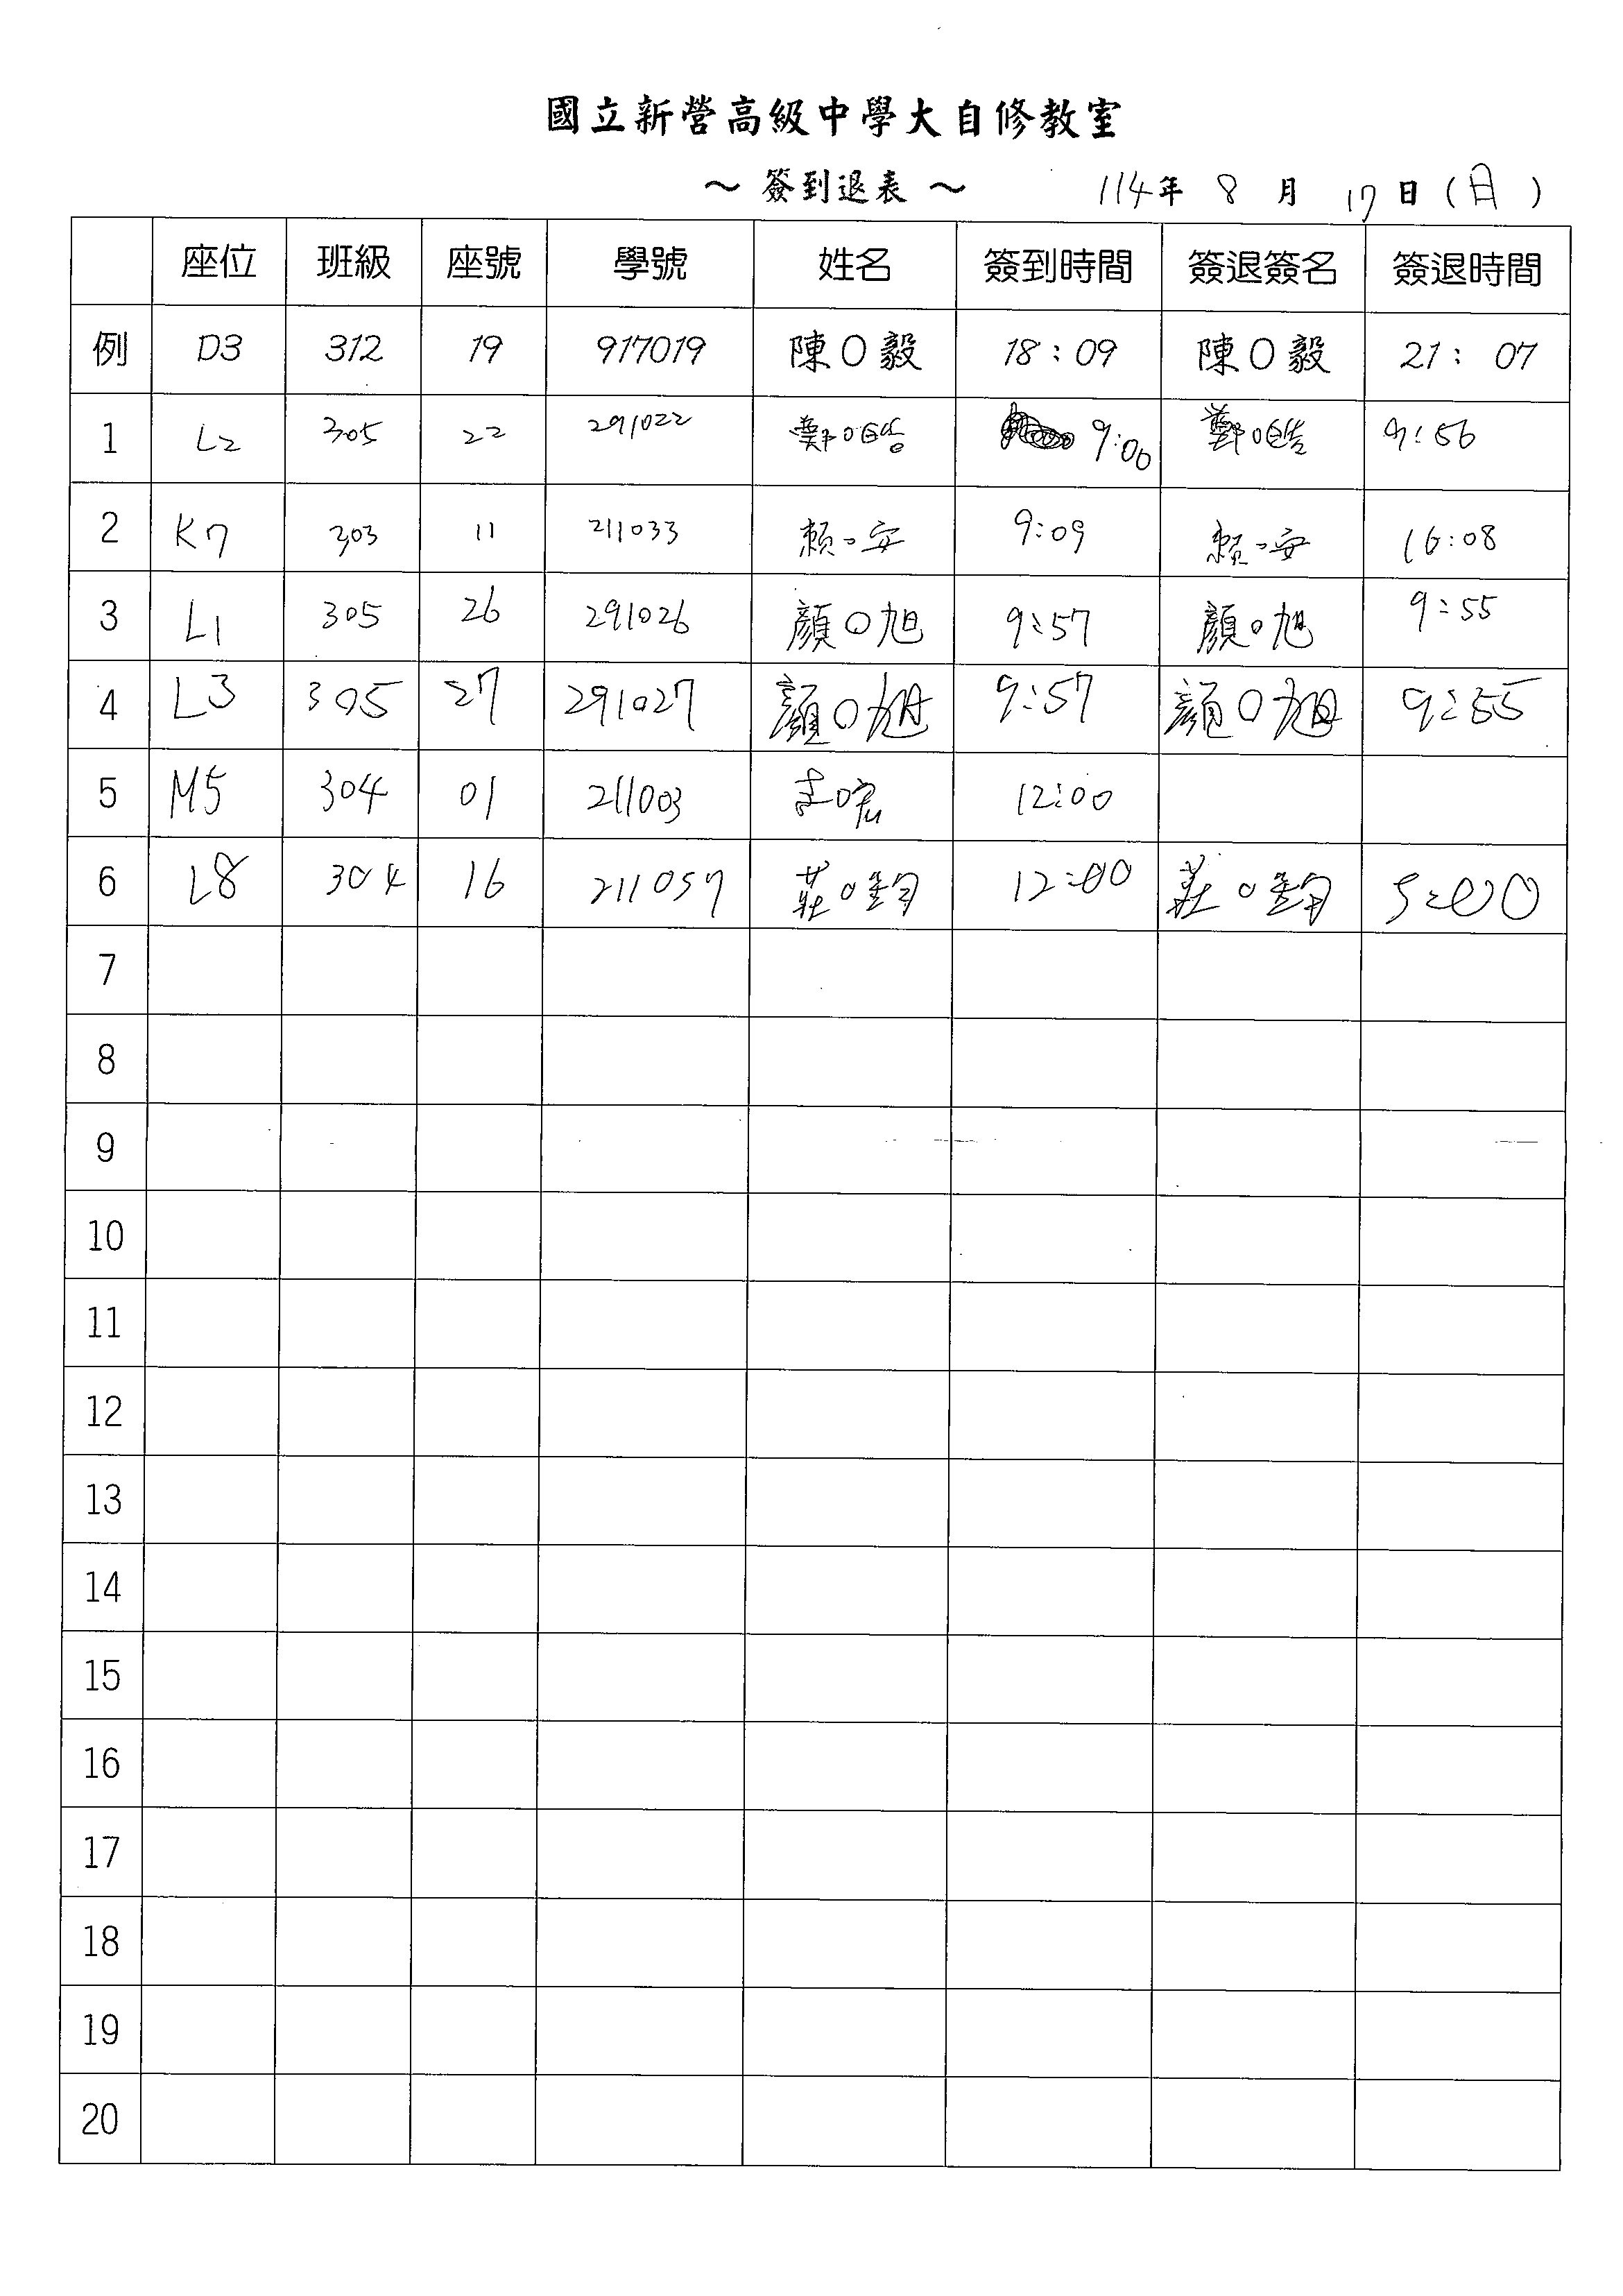 國立新營高級中學大自修教室
～ 簽到退表 ～ 114年 8 月 17日(日)
座位 班級 座號 學號 姓名 簽到時間 簽退簽名 簽退時間
例 D3 312 19 917019 陳O毅 18:09 陳O毅 21: 07
1 L2 305 22 291022 鄭O皓 9:00 鄭O皓 9:56
2 K7 303 11 211033 賴○安 9:09 賴○安 16:08
3 L1 305 26 291026 顏O旭 9:57 顏O旭 9:55
4 L3 305 27 291027 顏O旭 9:57 顏O旭 9:55
5 M5 304 01 211003 12:00
6 L8 304 16 211057 莊O鈞 12:00 莊O鈞 5:00
7
8
9
10
11
12
13
14
15
16
17
18
19
20